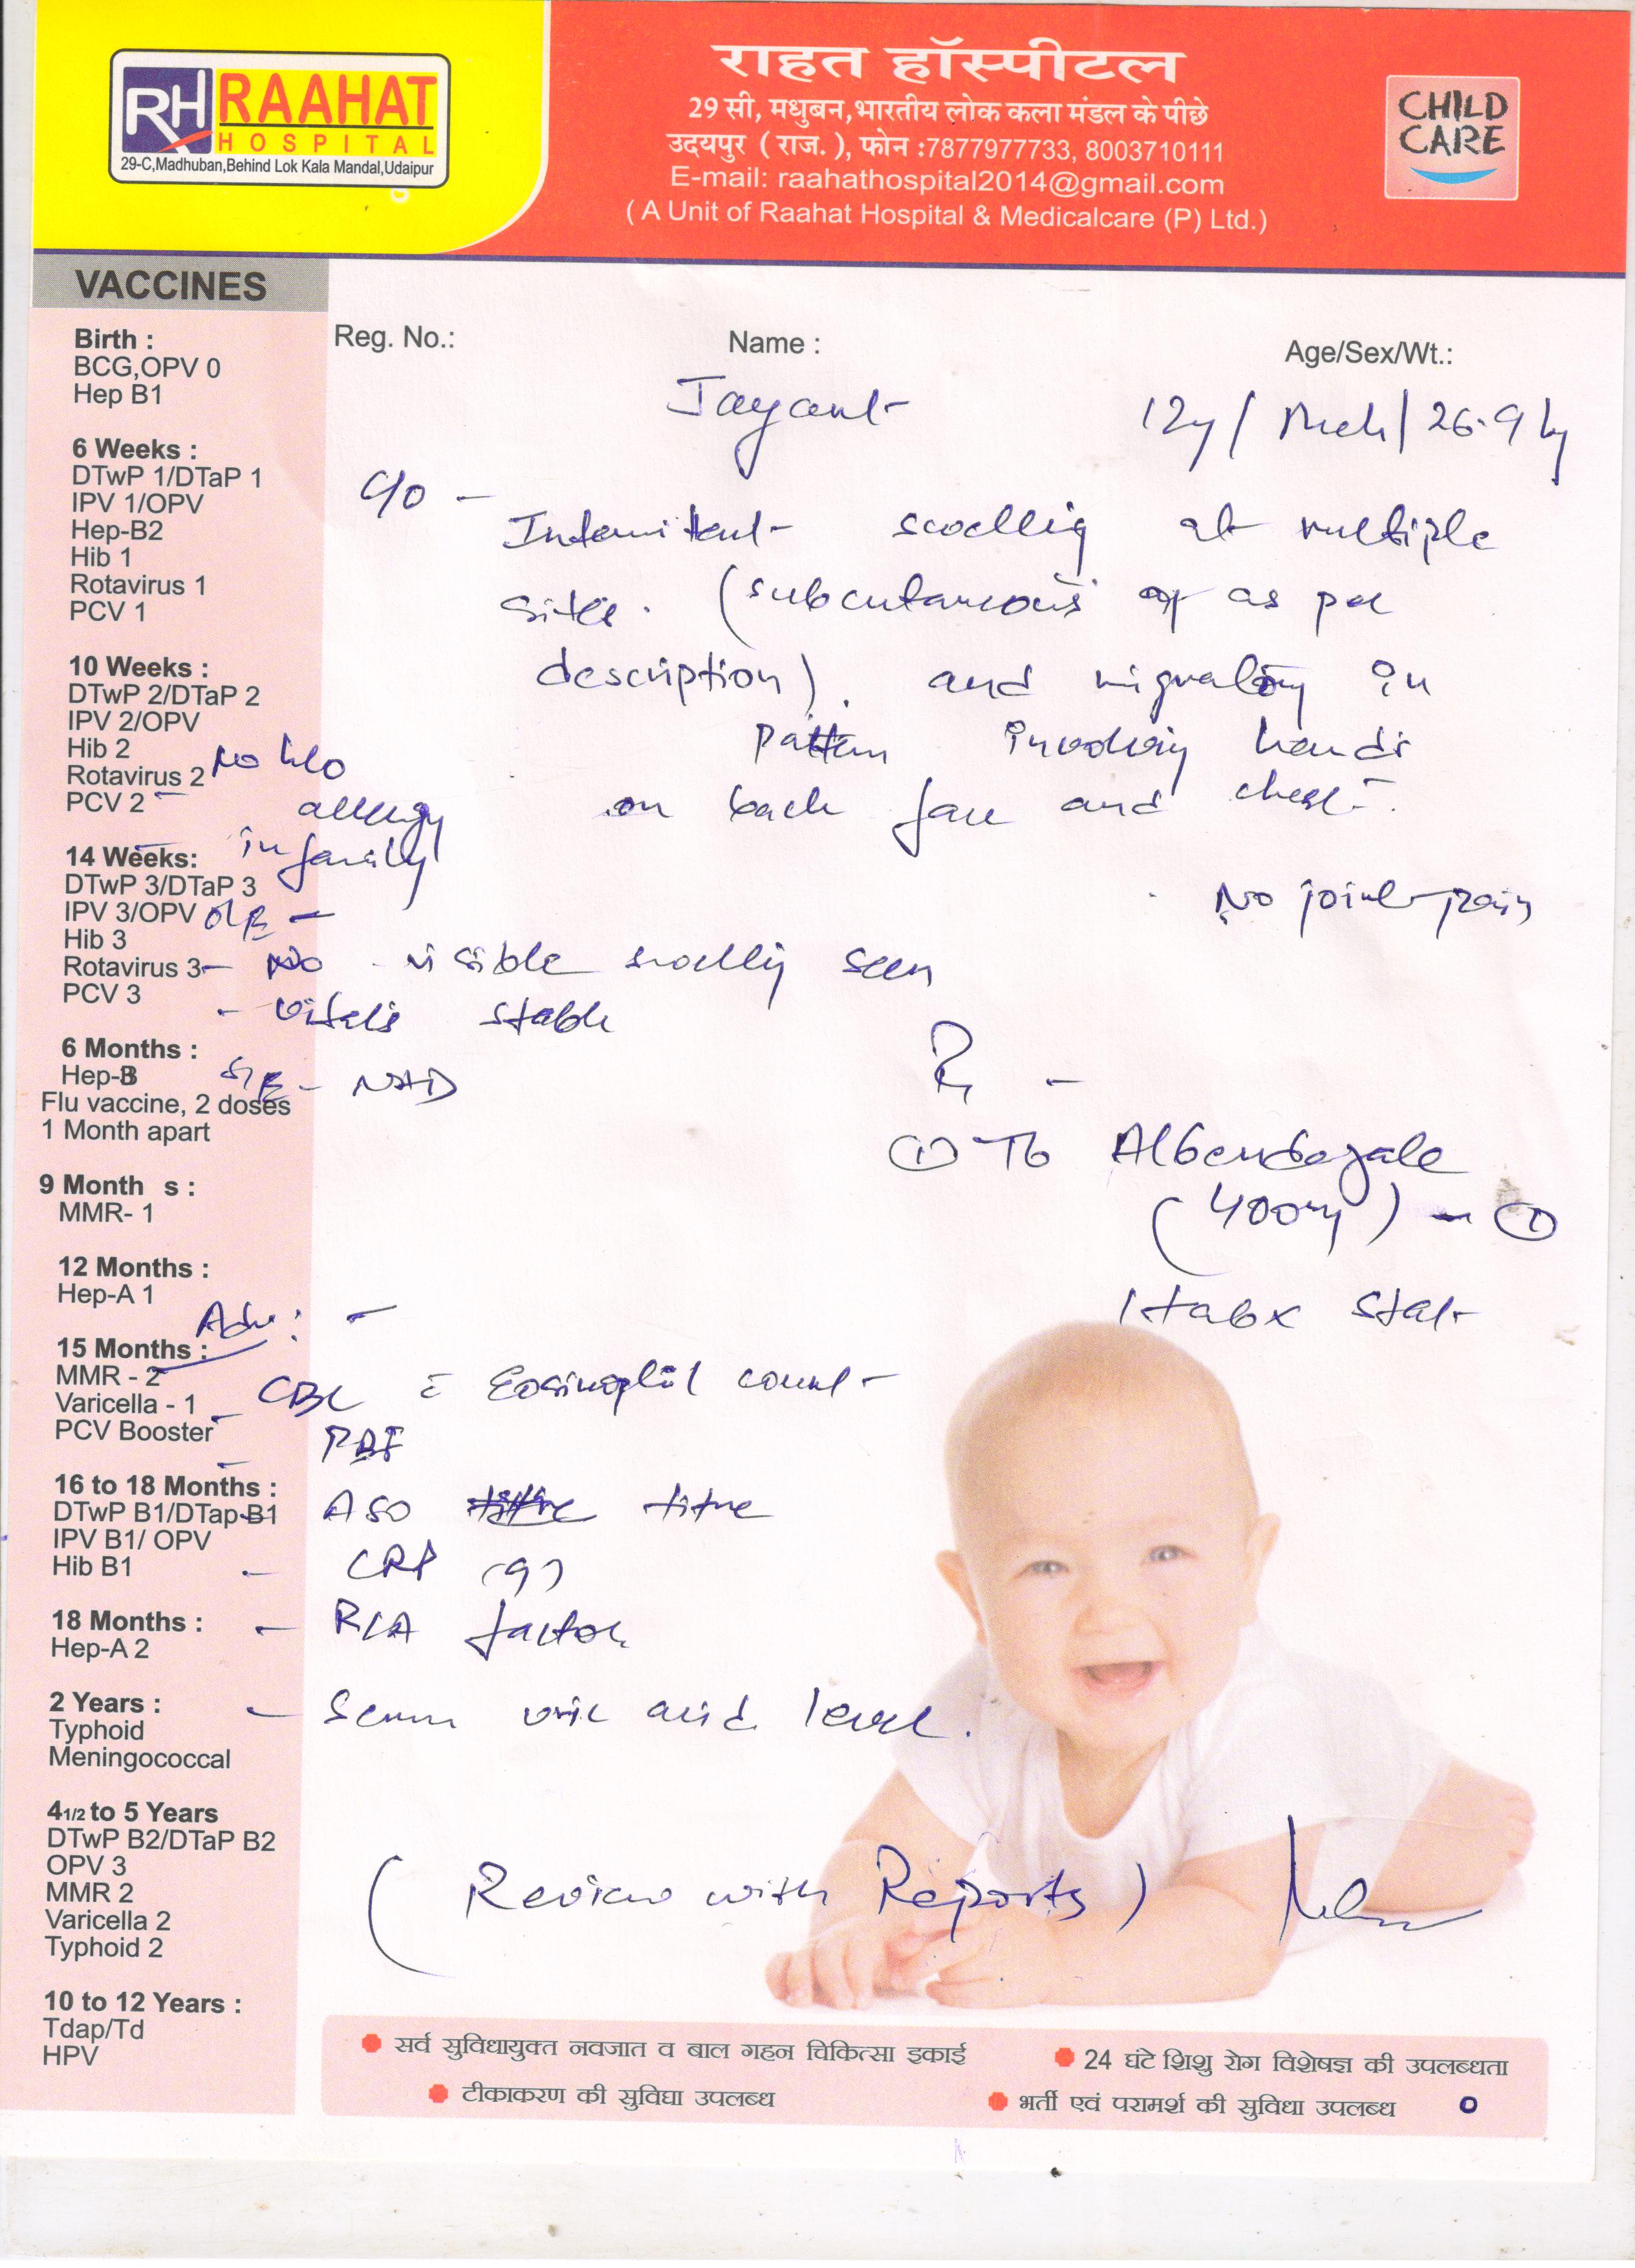 RH RAAHAT
HOSPITAL
29-C,Madhuban,Behind Lok Kala Mandal,Udaipur
राहत हॉस्पीटल
29 सी, मधुबन,भारतीय लोक कला मंडल के पीछे
उदयपुर ( राज. ), फोन :7877977733, 8003710111
E-mail: raahathospital2014@gmail.com
( A Unit of Raahat Hospital & Medicalcare (P) Ltd.)
CHILD
CARE
VACCINES
Birth :
BCG,OPV 0
Hep B1
6 Weeks :
DTwP 1/DTaP 1
IPV 1/OPV
Hep-B2
Hib 1
Rotavirus 1
PCV 1
10 Weeks :
DTwP 2/DTaP 2
IPV 2/OPV
Hib 2
Rotavirus 2
PCV 2
14 Weeks:
DTwP 3/DTaP 3
IPV 3/OPV
Hib 3
Rotavirus 3
PCV 3
6 Months :
Hep-B3
Flu vaccine, 2 doses
1 Month apart
9 Month s :
MMR- 1
12 Months :
Hep-A 1
15 Months :
MMR - 2
Varicella - 1
PCV Booster
16 to 18 Months :
DTwP B1/DTap-B1
IPV B1/ OPV
Hib B1
18 Months :
Hep-A 2
2 Years :
Typhoid
Meningococcal
41/2 to 5 Years
DTwP B2/DTaP B2
OPV 3
MMR 2
Varicella 2
Typhoid 2
10 to 12 Years :
Tdap/Td
HPV
Reg. No.: Name : Age/Sex/Wt.:
Jayant 12y/ Male/ 26.9 kg
C/o -
Intermittent swelling at multiple
sites. (subcutaneous as per
description). and migratory in
pattern involving hands
on back face and chest.
No h/o
allergy
in family
No joint pain
O/E -
- No visible swelling seen
- Vitals stable
S/E - NAD
Rx -
① Tb Albendazole
(400mg) - ①
1 tab x stat
Adv: -
- CBC c Eosinophil count
- PBF
- ASO titre
- CRP (q)
- R/A factor
- Serum uric acid level.
( Review with Reports )
सर्व सुविधायुक्त नवजात व बाल गहन चिकित्सा इकाई
24 घंटे शिशु रोग विशेषज्ञ की उपलब्धता
टीकाकरण की सुविघा उपलब्ध
भर्ती एवं परामर्श की सुविधा उपलब्ध